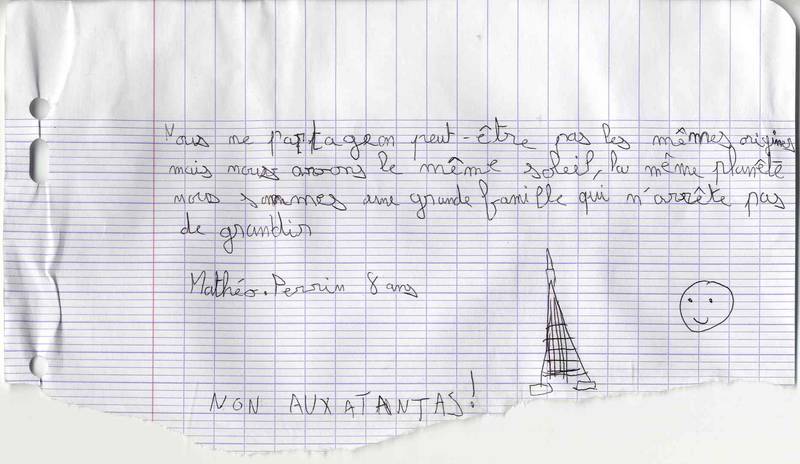 Nous ne partageon peut-être pas les mêmes origines
mais nous avons le même soleil, la même planète
nous sommes une grande famille qui n'arrête pas
de grandir
Mathéo.Perrin 8 ans
NON AUX ATANTAS!